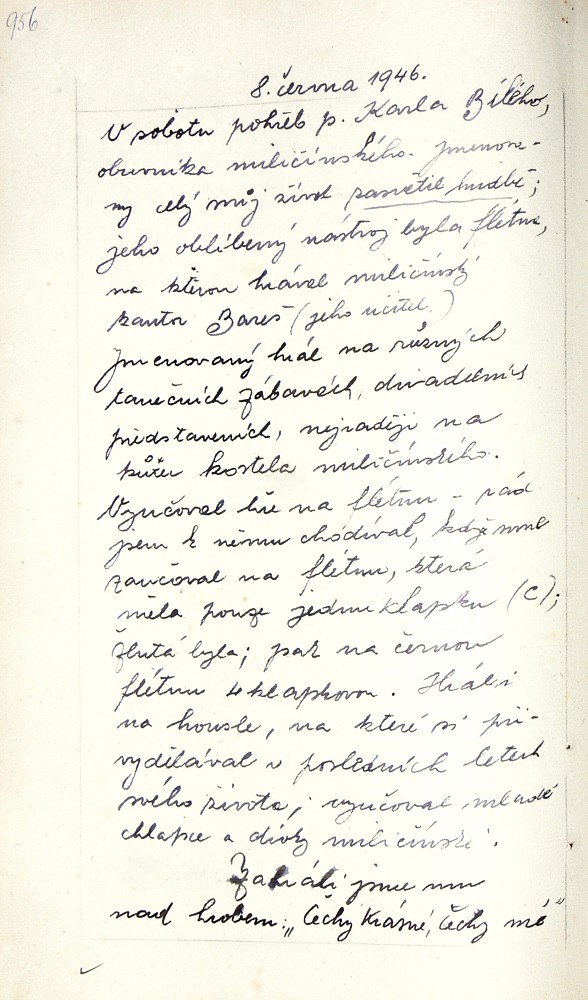 956
8. června 1946.
V sobotu pohřeb p. Karla Bílého,
obuvníka miličínského. Jmenova-
ný celý svůj život zasvětil hudbě;
jeho oblíbený nástroj byla flétna,
na kterou hrával miličínský
kantor Bareš (jeho učitel.)
Jmenovaný hrál na různých
tanečních zábavách, divadelních
představeních, nejraději na
kůru kostela miličínského.
Vyučoval hře na flétnu - rád
jsem k němu chodíval, když mne
zaučoval na flétnu, která
měla pouze jednu klapku (C);
žlutá byla; pak na černou
flétnu 4 klapkovou. Hrál i
na housle, na které si při-
vydělával v posledních letech
svého života; vyučoval mladé
chlapce a dívky miličínské.
Zahráli jsme mu
nad hrobem: „Čechy krásné, Čechy mé"